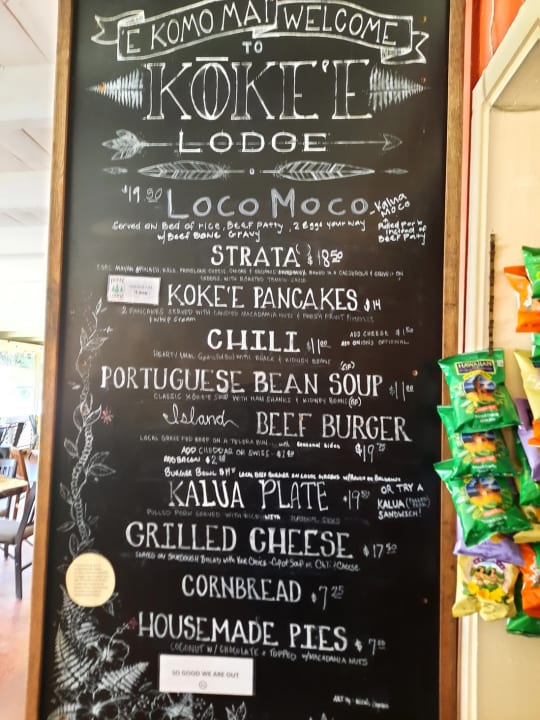 E KOMO MAI WELCOME
TO
KŌKE'E
LODGE
$19.50 LOCO MOCO - Kalua Moco
Served on Bed of rice, Beef patty, 2 eggs your way
w/ Beef Bone Gravy
Pulled Pork instead of Beef Patty
STRATA $18.50
KOKE'E PANCAKES $14
2 PANCAKES SERVED WITH CANDIED MACADAMIA NUTS & FRESH FRUIT
& whip cream
CHILI $11.00
ADD CHEESE $1.50
ADD ONIONS OPTIONAL
HEARTY LOCAL GROUND BEEF WITH BLACK & KIDNEY BEANS
PORTUGUESE BEAN SOUP $11.00
CLASSIC KŌKE'E SOUP WITH HAM SHANKS & KIDNEY BEANS (GF)
Island BEEF BURGER
LOCAL GRASS FED BEEF ON A TELERA BUN... with seasonal sides
$19.75
ADD CHEDDAR OR SWISS $2.00
ADD BACON
BURGER BOWL LOCAL BEEF BURGER ON LOCAL GREENS
KALUA PLATE $19.50
OR TRY A
KALUA (PULLED PORK)
SANDWICH!
PULLED PORK SERVED WITH RICE WITH SEASONAL SIDES
GRILLED CHEESE $17.50
SERVED ON SOURDOUGH BREAD with Your Choice - Cup of Soup or Chili & Cheese
CORNBREAD $7.25
HOUSEMADE PIES $7.00
COCONUT W/ CHOCOLATE & TOPPED W/ MACADAMIA NUTS
SO GOOD WE ARE OUT
ART by
HAWAIIAN